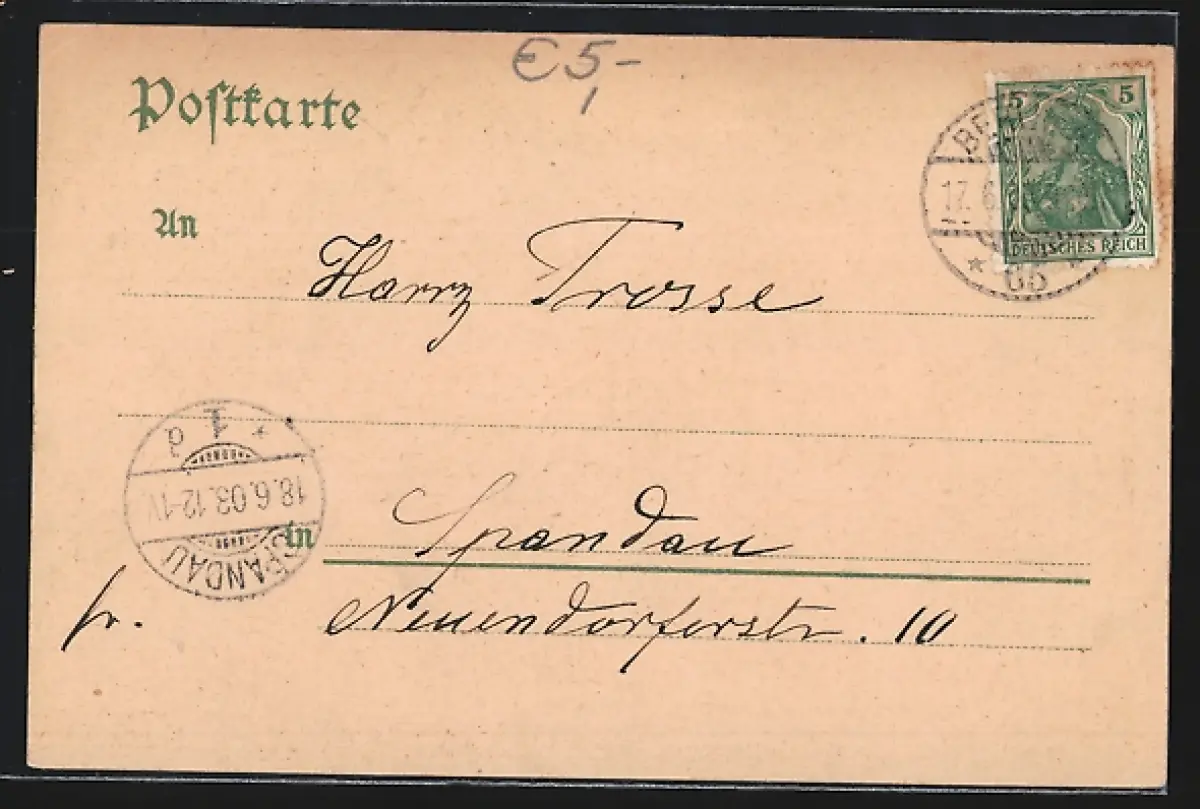 € 5,-
Postkarte
5 5
DEUTSCHES REICH
17. 6.
65
An
Harry Trosse
1 d
18.6.03. 12-1V
SPANDAU
in Spandau
fr. Neuendorferstr. 10